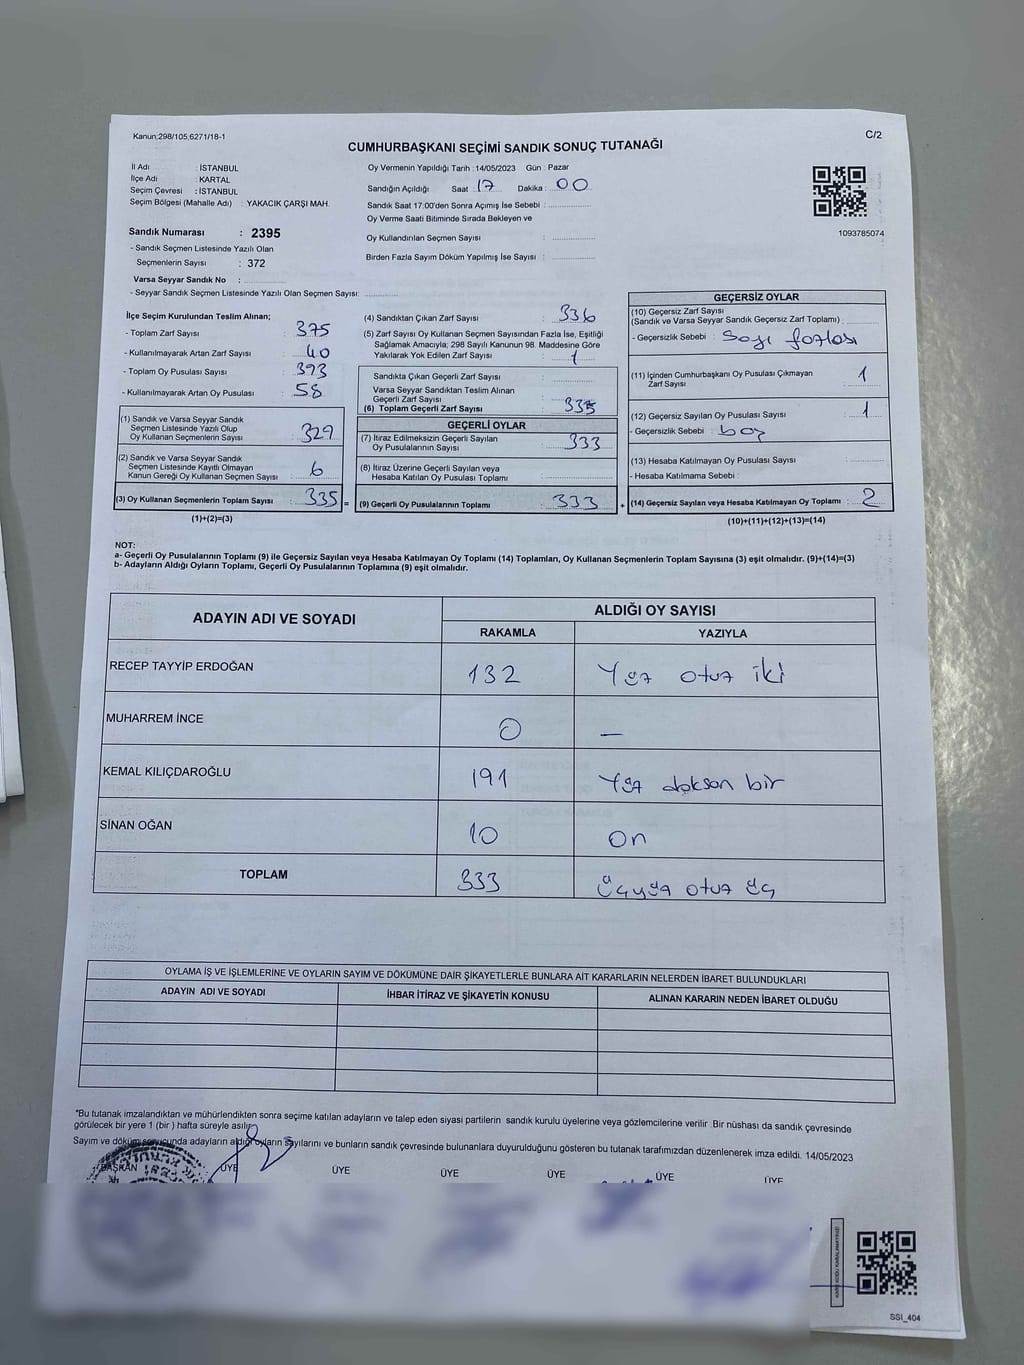 Kanun:298/105,6271/18-1
C/2
CUMHURBAŞKANI SEÇİMİ SANDIK SONUÇ TUTANAĞI
İl Adı : İSTANBUL
İlçe Adı : KARTAL
Seçim Çevresi : İSTANBUL
Seçim Bölgesi (Mahalle Adı) : YAKACIK ÇARŞI MAH.
Sandık Numarası : 2395
- Sandık Seçmen Listesinde Yazılı Olan
Seçmenlerin Sayısı : 372
Varsa Seyyar Sandık No :
- Seyyar Sandık Seçmen Listesinde Yazılı Olan Seçmen Sayısı:
Oy Vermenin Yapıldığı Tarih : 14/05/2023 Gün : Pazar
Sandığın Açıldığı Saat : 17 Dakika : 00
Sandık Saat 17:00'den Sonra Açımış İse Sebebi :
Oy Verme Saati Bitiminde Sırada Bekleyen ve
Oy Kullandırılan Seçmen Sayısı :
Birden Fazla Sayım Döküm Yapılmış İse Sayısı :
1093785074
İlçe Seçim Kurulundan Teslim Alınan;
- Toplam Zarf Sayısı : 375
- Kullanılmayarak Artan Zarf Sayısı : 40
- Toplam Oy Pusulası Sayısı : 393
- Kullanılmayarak Artan Oy Pusulası : 58
(1) Sandık ve Varsa Seyyar Sandık
Seçmen Listesinde Yazılı Olup
Oy Kullanan Seçmenlerin Sayısı : 329
(2) Sandık ve Varsa Seyyar Sandık
Seçmen Listesinde Kayıtlı Olmayan
Kanun Gereği Oy Kullanan Seçmen Sayısı : 6
(3) Oy Kullanan Seçmenlerin Toplam Sayısı : 335 =
(1)+(2)=(3)
(4) Sandıktan Çıkan Zarf Sayısı : 336
(5) Zarf Sayısı Oy Kullanan Seçmen Sayısından Fazla İse, Eşitliği
Sağlamak Amacıyla; 298 Sayılı Kanunun 98. Maddesine Göre
Yakılarak Yok Edilen Zarf Sayısı : 1
Sandıkta Çıkan Geçerli Zarf Sayısı :
Varsa Seyyar Sandıktan Teslim Alınan
Geçerli Zarf Sayısı :
(6) Toplam Geçerli Zarf Sayısı : 335
GEÇERLİ OYLAR
(7) İtiraz Edilmeksizin Geçerli Sayılan
Oy Pusulalarının Sayısı : 333
(8) İtiraz Üzerine Geçerli Sayılan veya
Hesaba Katılan Oy Pusulası Toplamı :
(9) Geçerli Oy Pusulalarının Toplamı : 333 +
GEÇERSİZ OYLAR
(10) Geçersiz Zarf Sayısı
(Sandık ve Varsa Seyyar Sandık Geçersiz Zarf Toplamı) :
- Geçersizlik Sebebi : Sayı fazlası
(11) İçinden Cumhurbaşkanı Oy Pusulası Çıkmayan
Zarf Sayısı : 1
(12) Geçersiz Sayılan Oy Pusulası Sayısı : 1
- Geçersizlik Sebebi : boş
(13) Hesaba Katılmayan Oy Pusulası Sayısı :
- Hesaba Katılmama Sebebi :
(14) Geçersiz Sayılan veya Hesaba Katılmayan Oy Toplamı : 2
(10)+(11)+(12)+(13)=(14)
NOT:
a- Geçerli Oy Pusulalarının Toplamı (9) ile Geçersiz Sayılan veya Hesaba Katılmayan Oy Toplamı (14) Toplamları, Oy Kullanan Seçmenlerin Toplam Sayısına (3) eşit olmalıdır. (9)+(14)=(3)
b- Adayların Aldığı Oyların Toplamı, Geçerli Oy Pusulalarının Toplamına (9) eşit olmalıdır.
ADAYIN ADI VE SOYADI ALDIĞI OY SAYISI
RAKAMLA YAZIYLA
RECEP TAYYİP ERDOĞAN 132 Yüz otuz iki
MUHARREM İNCE 0 –
KEMAL KILIÇDAROĞLU 191 Yüz doksan bir
SİNAN OĞAN 10 on
TOPLAM 333 üçyüz otuz üç
OYLAMA İŞ VE İŞLEMLERİNE VE OYLARIN SAYIM VE DÖKÜMÜNE DAİR ŞİKAYETLERLE BUNLARA AİT KARARLARIN NELERDEN İBARET BULUNDUKLARI
ADAYIN ADI VE SOYADI İHBAR İTİRAZ VE ŞİKAYETİN KONUSU ALINAN KARARIN NEDEN İBARET OLDUĞU
"Bu tutanak imzalandıktan ve mühürlendikten sonra seçime katılan adayların ve talep eden siyasi partilerin sandık kurulu üyelerine veya gözlemcilerine verilir. Bir nüshası da sandık çevresinde
görülecek bir yere 1 (bir ) hafta süreyle asılır.
Sayım ve döküm sonucunda adayların aldığı oyların sayılarını ve bunların sandık çevresinde bulunanlara duyurulduğunu gösteren bu tutanak tarafımızdan düzenlenerek imza edildi. 14/05/2023
BAŞKAN ÜYE ÜYE ÜYE ÜYE ÜYE ÜYE
SSI_404